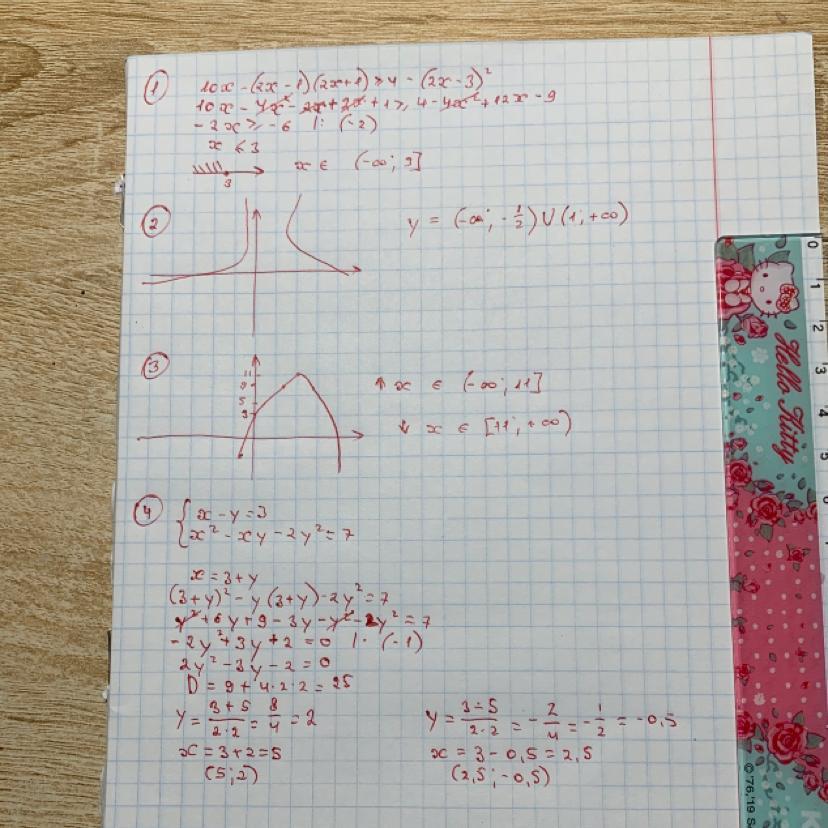 1
10x - (2x - 1)(2x+1) ≥ 4 - (2x - 3)²
10x - 4x² - 2x + 2x + 1 ≥ 4 - 4x² + 12x - 9
- 2x ≥ - 6 |: (-2)
x ≤ 3
3
x ∈ (-∞; 3]
2
y = (-∞; - 1/2) ∪ (1; +∞)
3
11
9
5
3
↑ x ∈ (-∞; 11]
↓ x ∈ [11; +∞)
4
{ x - y = 3
x² - xy - 2y² = 7
x = 3 + y
(3 + y)² - y (3 + y) - 2y² = 7
y² + 6y + 9 - 3y - y² - 2y² = 7
- 2y² + 3y + 2 = 0 |· (-1)
2y² - 3y - 2 = 0
D = 9 + 4·2·2 = 25
y = (3 + 5)/(2·2) = 8/4 = 2
x = 3 + 2 = 5
(5; 2)
y = (3 - 5)/(2·2) = - 2/4 = - 1/2 = - 0,5
x = 3 - 0,5 = 2,5
(2,5; - 0,5)
0
1
2
3
4
5
6
Hello Kitty
© '76, '19 S